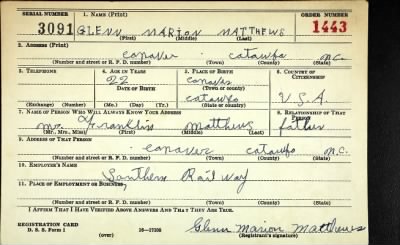 SERIAL NUMBER 1. NAME (Print) ORDER NUMBER
3091 GLENN MARION MATTHEWS 1443
(First) (Middle) (Last)
2. ADDRESS (Print)
conover catawba N.C.
(Number and street or R. F. D. number) (Town) (County) (State)
3. TELEPHONE 4. AGE IN YEARS 5. PLACE OF BIRTH 6. COUNTRY OF CITIZENSHIP
22 conover
DATE OF BIRTH (Town or county)
catawba U.S.A.
(Exchange) (Number) (Mo.) (Day) (Yr.) (State or country)
7. NAME OF PERSON WHO WILL ALWAYS KNOW YOUR ADDRESS 8. RELATIONSHIP OF THAT PERSON
mr. Franklin Matthews father
(Mr., Mrs., Miss) (First) (Middle) (Last)
9. ADDRESS OF THAT PERSON
conover catawba N.C.
(Number and street or R. F. D. number) (Town) (County) (State)
10. EMPLOYER'S NAME
Southern Railway
11. PLACE OF EMPLOYMENT OR BUSINESS
(Number and street or R. F. D. number) (Town) (County) (State)
I AFFIRM THAT I HAVE VERIFIED ABOVE ANSWERS AND THAT THEY ARE TRUE.
REGISTRATION CARD
D. S. S. Form 1 (over) 16—17105 Glenn Marion Matthews
(Registrant's signature)